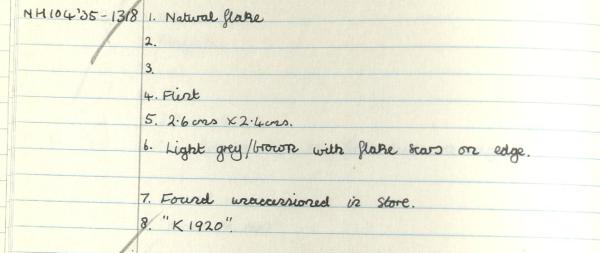 NH104'35-1318 1. Natural flake
2.
3.
4. Flint
5. 2.6cms x 2.4cms.
6. Light grey/brown with flake scars on edge.
7. Found unaccessioned in store.
8. "K1920".